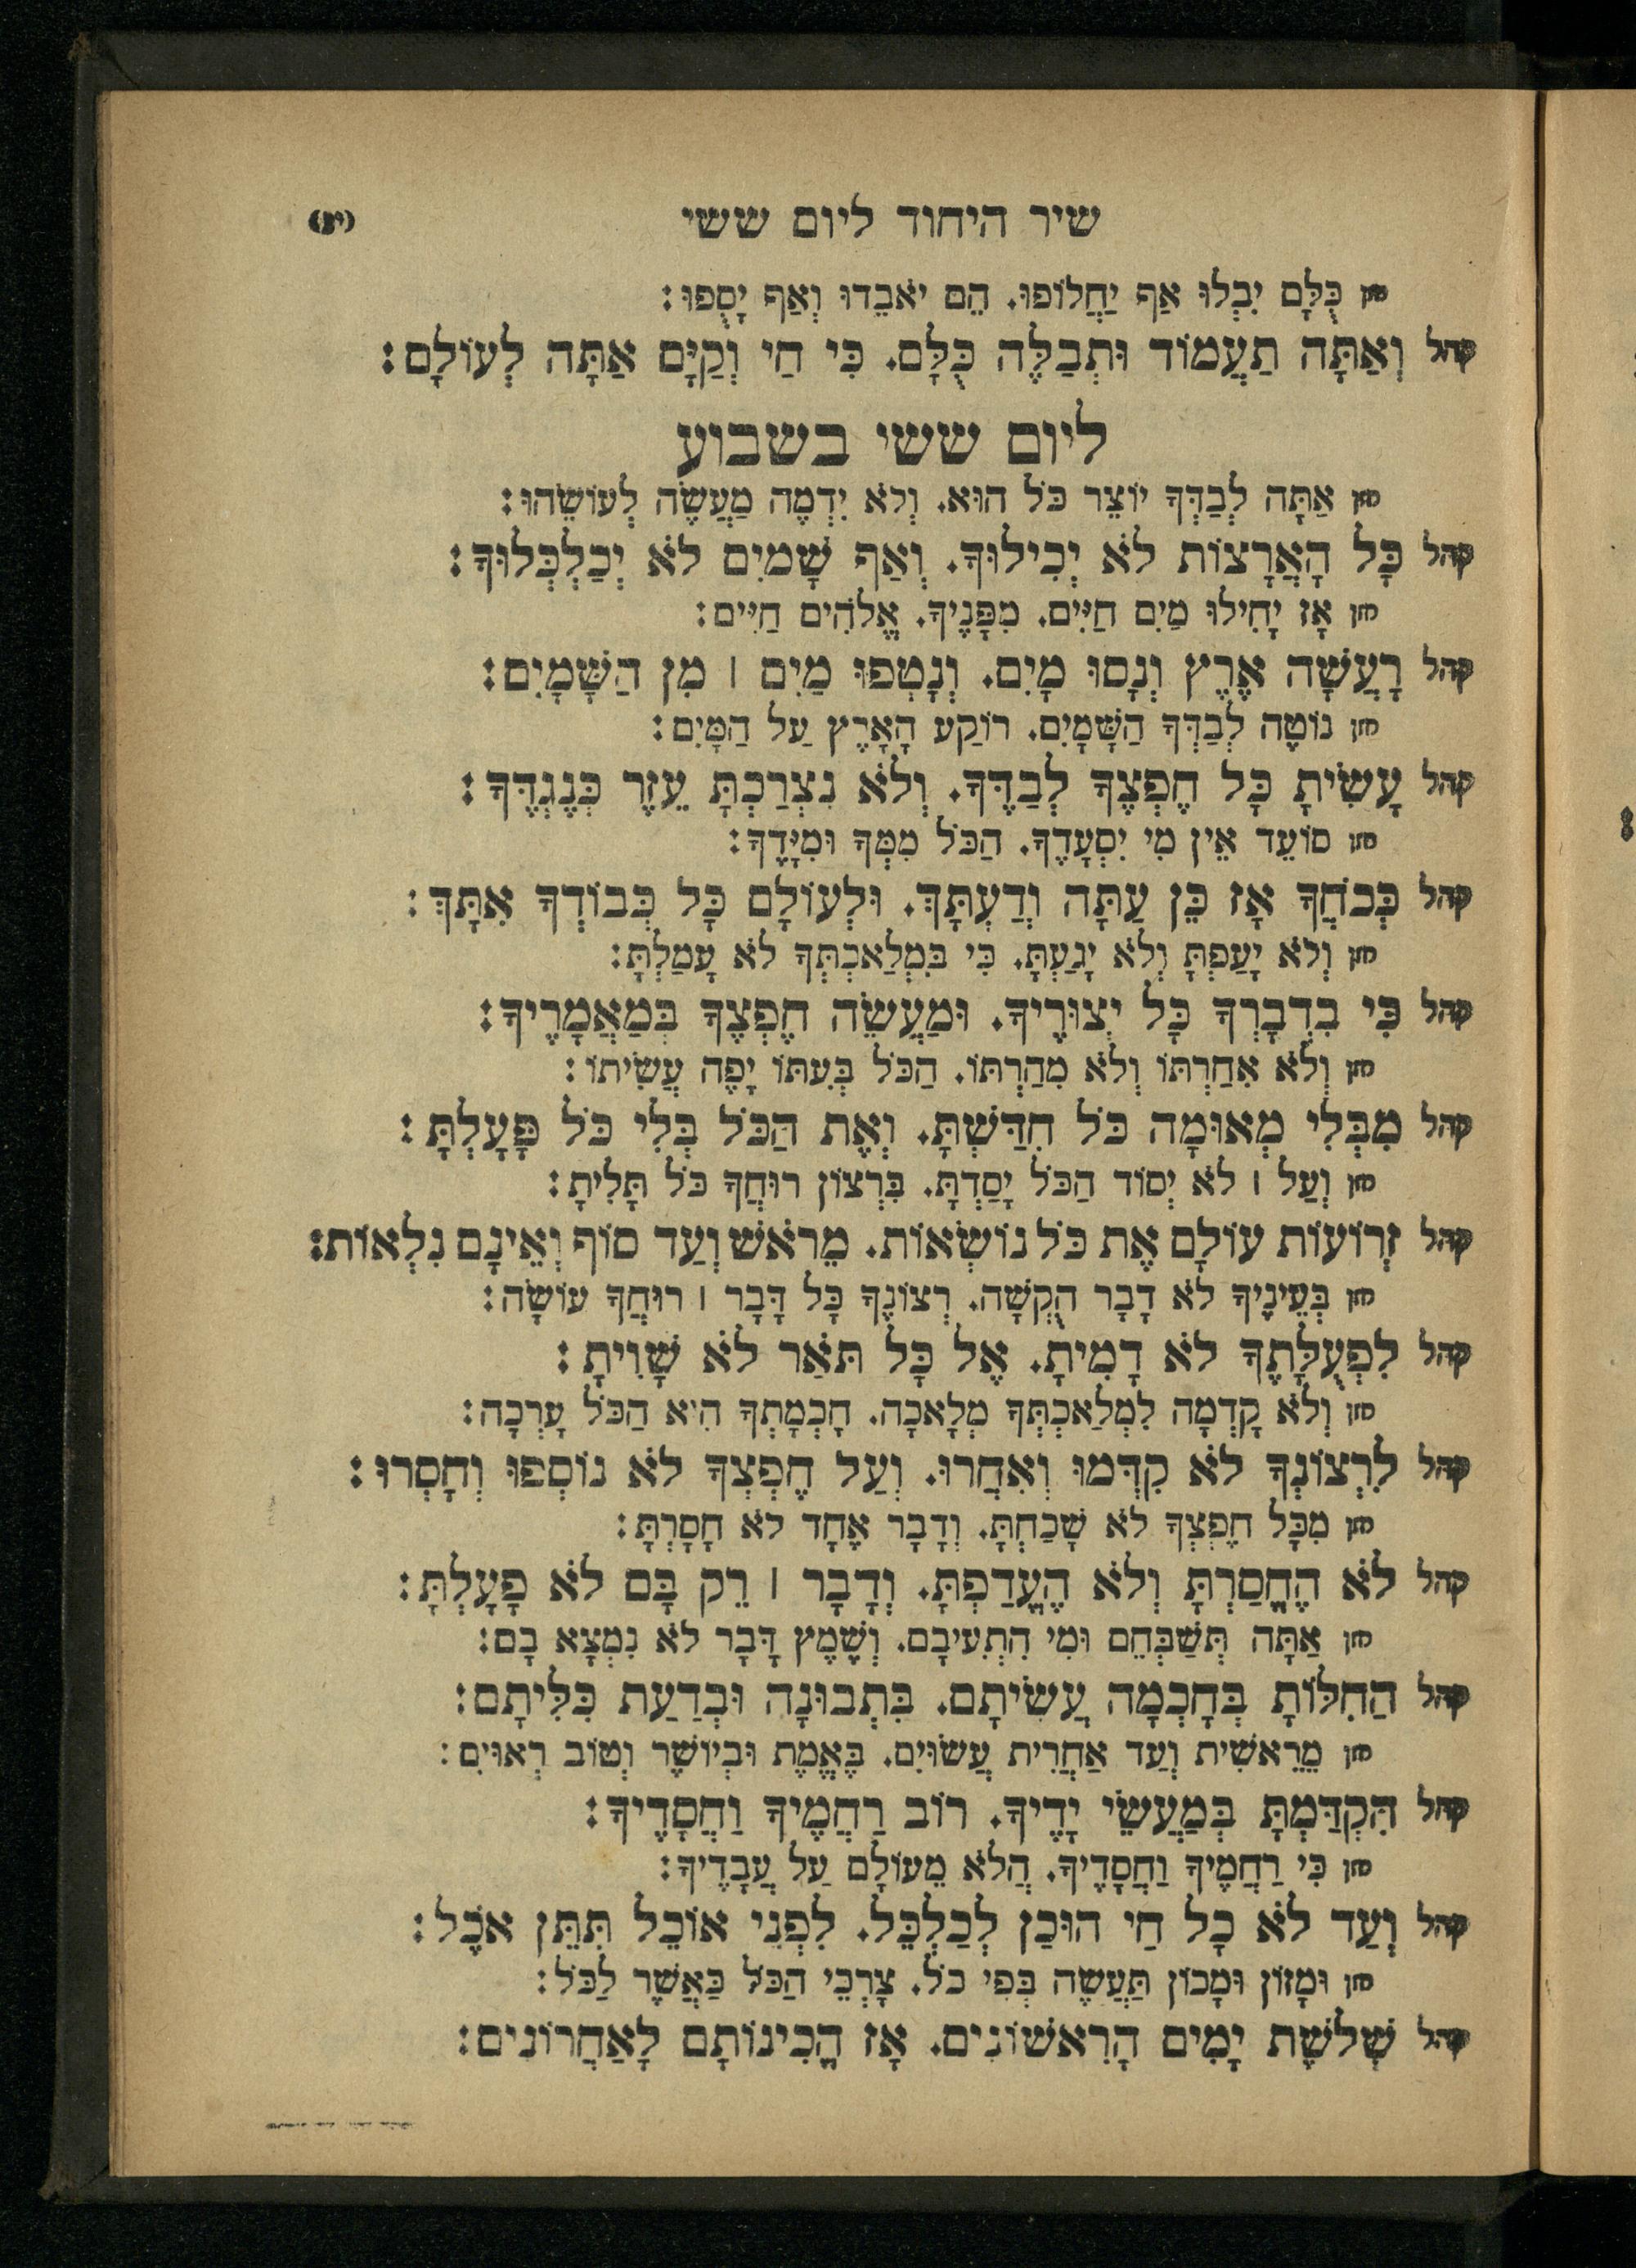 שיר היחוד ליום ששי
חזן כֻּלָּם יִבְלוּ אַף יַחֲלוֹפוּ. הֵם יֹאבֵדוּ וְאַף יָסֻפוּ:
קהל וְאַתָּה תַעֲמוֹד וּתְבַלֶּה כֻּלָּם. כִּי חַי וְקַיָּם אַתָּה לְעוֹלָם:
ליום ששי בשבוע
חזן אַתָּה לְבַדְּךָ יוֹצֵר כֹּל הוּא. וְלֹא יִדְמֶה מַעֲשֶׂה לְעוֹשֵׂהוּ:
קהל כָּל הָאֲרָצוֹת לֹא יְכִילוּךָ. וְאַף שָׁמיִם לֹא יְכַלְכְּלוּךָ:
חזן אָז יָחִילוּ מַיִם חַיִּים. מִפָּנֶיךָ. אֱלֹהִים חַיִּים:
קהל רָעֲשָׁה אֶרֶץ וְנָסוּ מָיִם. וְנָטְפוּ מַיִם ׀ מִן הַשָּׁמָיִם:
חזן נוֹטֶה לְבַדְּךָ הַשָּׁמָיִם. רוֹקַע הָאָרֶץ עַל הַמָּיִם:
קהל עָשִׂיתָ כָּל חֶפְצְךָ לְבַדֶּךָ. וְלֹא נִצְרַכְתָּ עֵזֶר כְּנֶגְדֶּךָ:
חזן סוֹעֵד אֵין מִי יִסְעָדֶךָ. הַכֹּל מִמְּךָ וּמִיָּדֶךָ:
קהל כְּכֹחֲךָ אָז כֵּן עַתָּה וְדַעְתָּךְ. וּלְעוֹלָם כָּל כְּבוֹדְךָ אִתָּךְ:
חזן וְלֹא יָעַפְתָּ וְלֹא יָגַעְתָּ. כִּי בִּמְלַאכְתְּךָ לֹא עָמַלְתָּ:
קהל כִּי בִדְבָרְךָ כָּל יְצוּרֶיךָ. וּמַעֲשֵׂה חֶפְצְךָ בְּמַאֲמָרֶיךָ:
חזן וְלֹא אִחַרְתּוֹ וְלֹא מִהַרְתּוֹ. הַכֹּל בְּעִתּוֹ יָפֶה עֲשִׂיתוֹ:
קהל מִבְּלִי מְאוּמָה כֹּל חִדַּשְׁתָּ. וְאֶת הַכֹּל בְּלִי כֹּל פָּעָלְתָּ:
חזן וְעַל ׀ לֹא יְסוֹד הַכֹּל יָסַדְתָּ. בִּרְצוֹן רוּחֲךָ כֹּל תָּלִיתָ:
קהל זְרוֹעוֹת עוֹלָם אֶת כֹּל נוֹשְׂאוֹת. מֵרֹאשׁ וְעַד סוֹף וְאֵינָם נִלְאוֹת:
חזן בְּעֵינֶיךָ לֹא דָבָר הֻקְשָׁה. רְצוֹנְךָ כָּל דָּבָר ׀ רוּחֲךָ עוֹשָׂה:
קהל לִפְעֻלָּתְךָ לֹא דָמִיתָ. אֶל כָּל תֹּאַר לֹא שָׁוִיתָ:
חזן וְלֹא קָדְמָה לִמְלַאכְתְּךָ מְלָאכָה. חָכְמָתְךָ הִיא הַכֹּל עָרְכָה:
קהל לִרְצוֹנְךָ לֹא קִדְּמוּ וְאִחֲרוּ. וְעַל חֶפְצְךָ לֹא נוֹסְפוּ וְחָסְרוּ:
חזן מִכָּל חֶפְצְךָ לֹא שָׁכַחְתָּ. וְדָבָר אֶחָד לֹא חָסָרְתָּ:
קהל לֹא הֶחֱסַרְתָּ וְלֹא הֶעֱדַפְתָּ. וְדָבָר ׀ רֵק בָּם לֹא פָעָלְתָּ:
חזן אַתָּה תְּשַׁבְּחֵם וּמִי הִתְעִיבָם. וְשֶׁמֶץ דָּבָר לֹא נִמְצָא בָם:
קהל הַחִלּוֹתָ בְּחָכְמָה עֲשִׂיתָם. בִּתְבוּנָה וּבְדַעַת כִּלִּיתָם:
חזן מֵרֵאשִׁית וְעַד אַחֲרִית עֲשׂוּיִם. בֶּאֱמֶת וּבְיוֹשֶׁר וְטוֹב רְאוּיִם:
קהל הִקְדַּמְתָּ בְּמַעֲשֵׂי יָדֶיךָ. רוֹב רַחֲמֶיךָ וַחֲסָדֶיךָ:
חזן כִּי רַחֲמֶיךָ וַחֲסָדֶיךָ. הֲלֹא מֵעוֹלָם עַל עֲבָדֶיךָ:
קהל וְעַד לֹא כָל חַי הוּכַן לְכַלְכֵּל. לִפְנֵי אוֹכֵל תִּתֵּן אֹכֶל:
חזן וּמָזוֹן וּמָכוֹן תַּעֲשֶׂה בְּפִי כֹל. צָרְכֵי הַכֹּל כַּאֲשֶׁר לַכֹּל:
קהל שְׁלֹשֶׁת יָמִים הָרִאשׁוֹנִים. אָז הֲכִינוֹתָם לָאַחֲרוֹנִים: